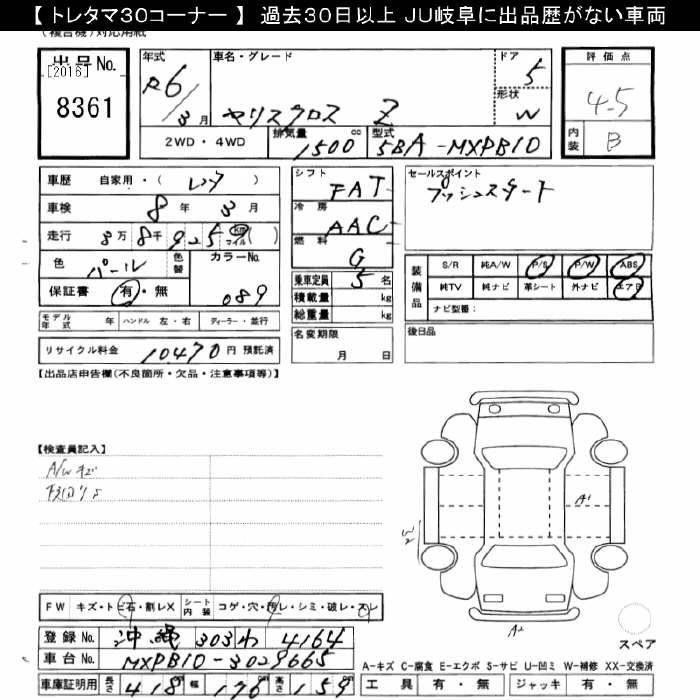 【 トレタマ30コーナー 】 過去30日以上 JU岐阜に出品歴がない車両
(複合機)対応用紙
出品No.
[2016]
8361
年式
R6/3月
車名・グレード
ヤリスクロス Z
ドア
5
形状
W
2WD・4WD
排気量
1500 cc
型式
5BA-MXPB10
評価点
4.5
内装
B
車歴 自家用・( レンタ )
車検 8年 3月
走行 8万8千925 km マイル ( )
色 パール
色替
カラーNo.
089
保証書 有・無
モデル年式 年 ハンドル 左・右 ディーラー・並行
リサイクル料金 10470 円 預託済
シフト
FAT
冷房
AAC
燃料
G
乗車定員 5 名
積載量 kg
総重量 kg
名変期限
月 日
セールスポイント
プッシュスタート
装備品
S/R 純A/W P/S P/W ABS
純TV 純ナビ 革シート 外ナビ エアB
ナビ型番：
後日品
【出品店申告欄(不良箇所・欠品・注意事項等)】
【検査員記入】
A/Wキズ
A1
W2
A2
FW キズ・トビ石・割レX
シート内装 コゲ・穴・汚レ・シミ・破レ・スレ
登録No. 沖縄 303 わ 4164
車台No. MXPB10-3029665
車庫証明用 長さ 418cm 幅 176cm 高さ 159cm
スペア
A-キズ C-腐食 E-エクボ S-サビ U-凹ミ W-補修 XX-交換済
工具 有・無 ジャッキ 有・無